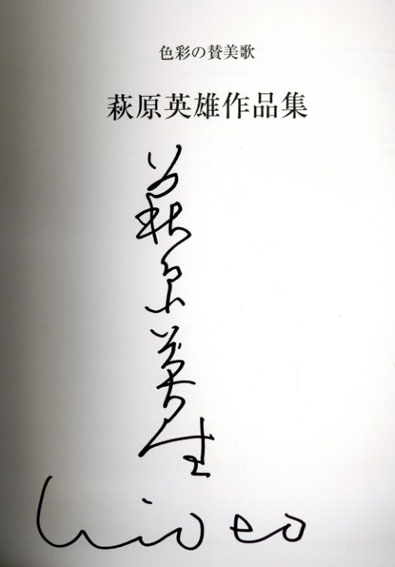 色彩の賛美歌
萩原英雄作品集
萩原英雄
Hideo